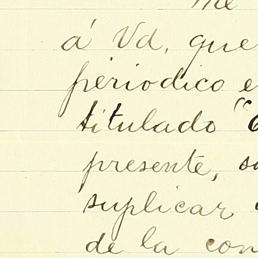 Me
á Vd, que
periodico e
titulado "E
presente, su
suplicar
de la con